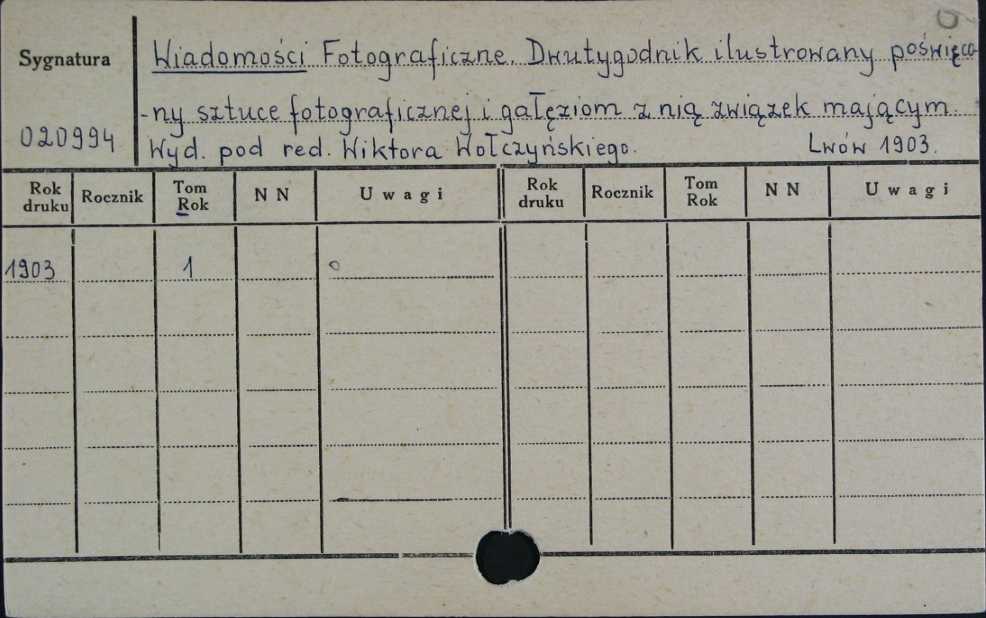 Sygnatura
Wiadomości Fotograficzne. Dwutygodnik ilustrowany poświęca
-ny sztuce fotograficznej i gałęziom z nią związek mającym.
020994
Wyd. pod red. Wiktora Wołczyńskiego. Lwów 1903.
Rok druku Rocznik Tom Rok N N Uwagi Rok druku Rocznik Tom Rok N N Uwagi
1903 1